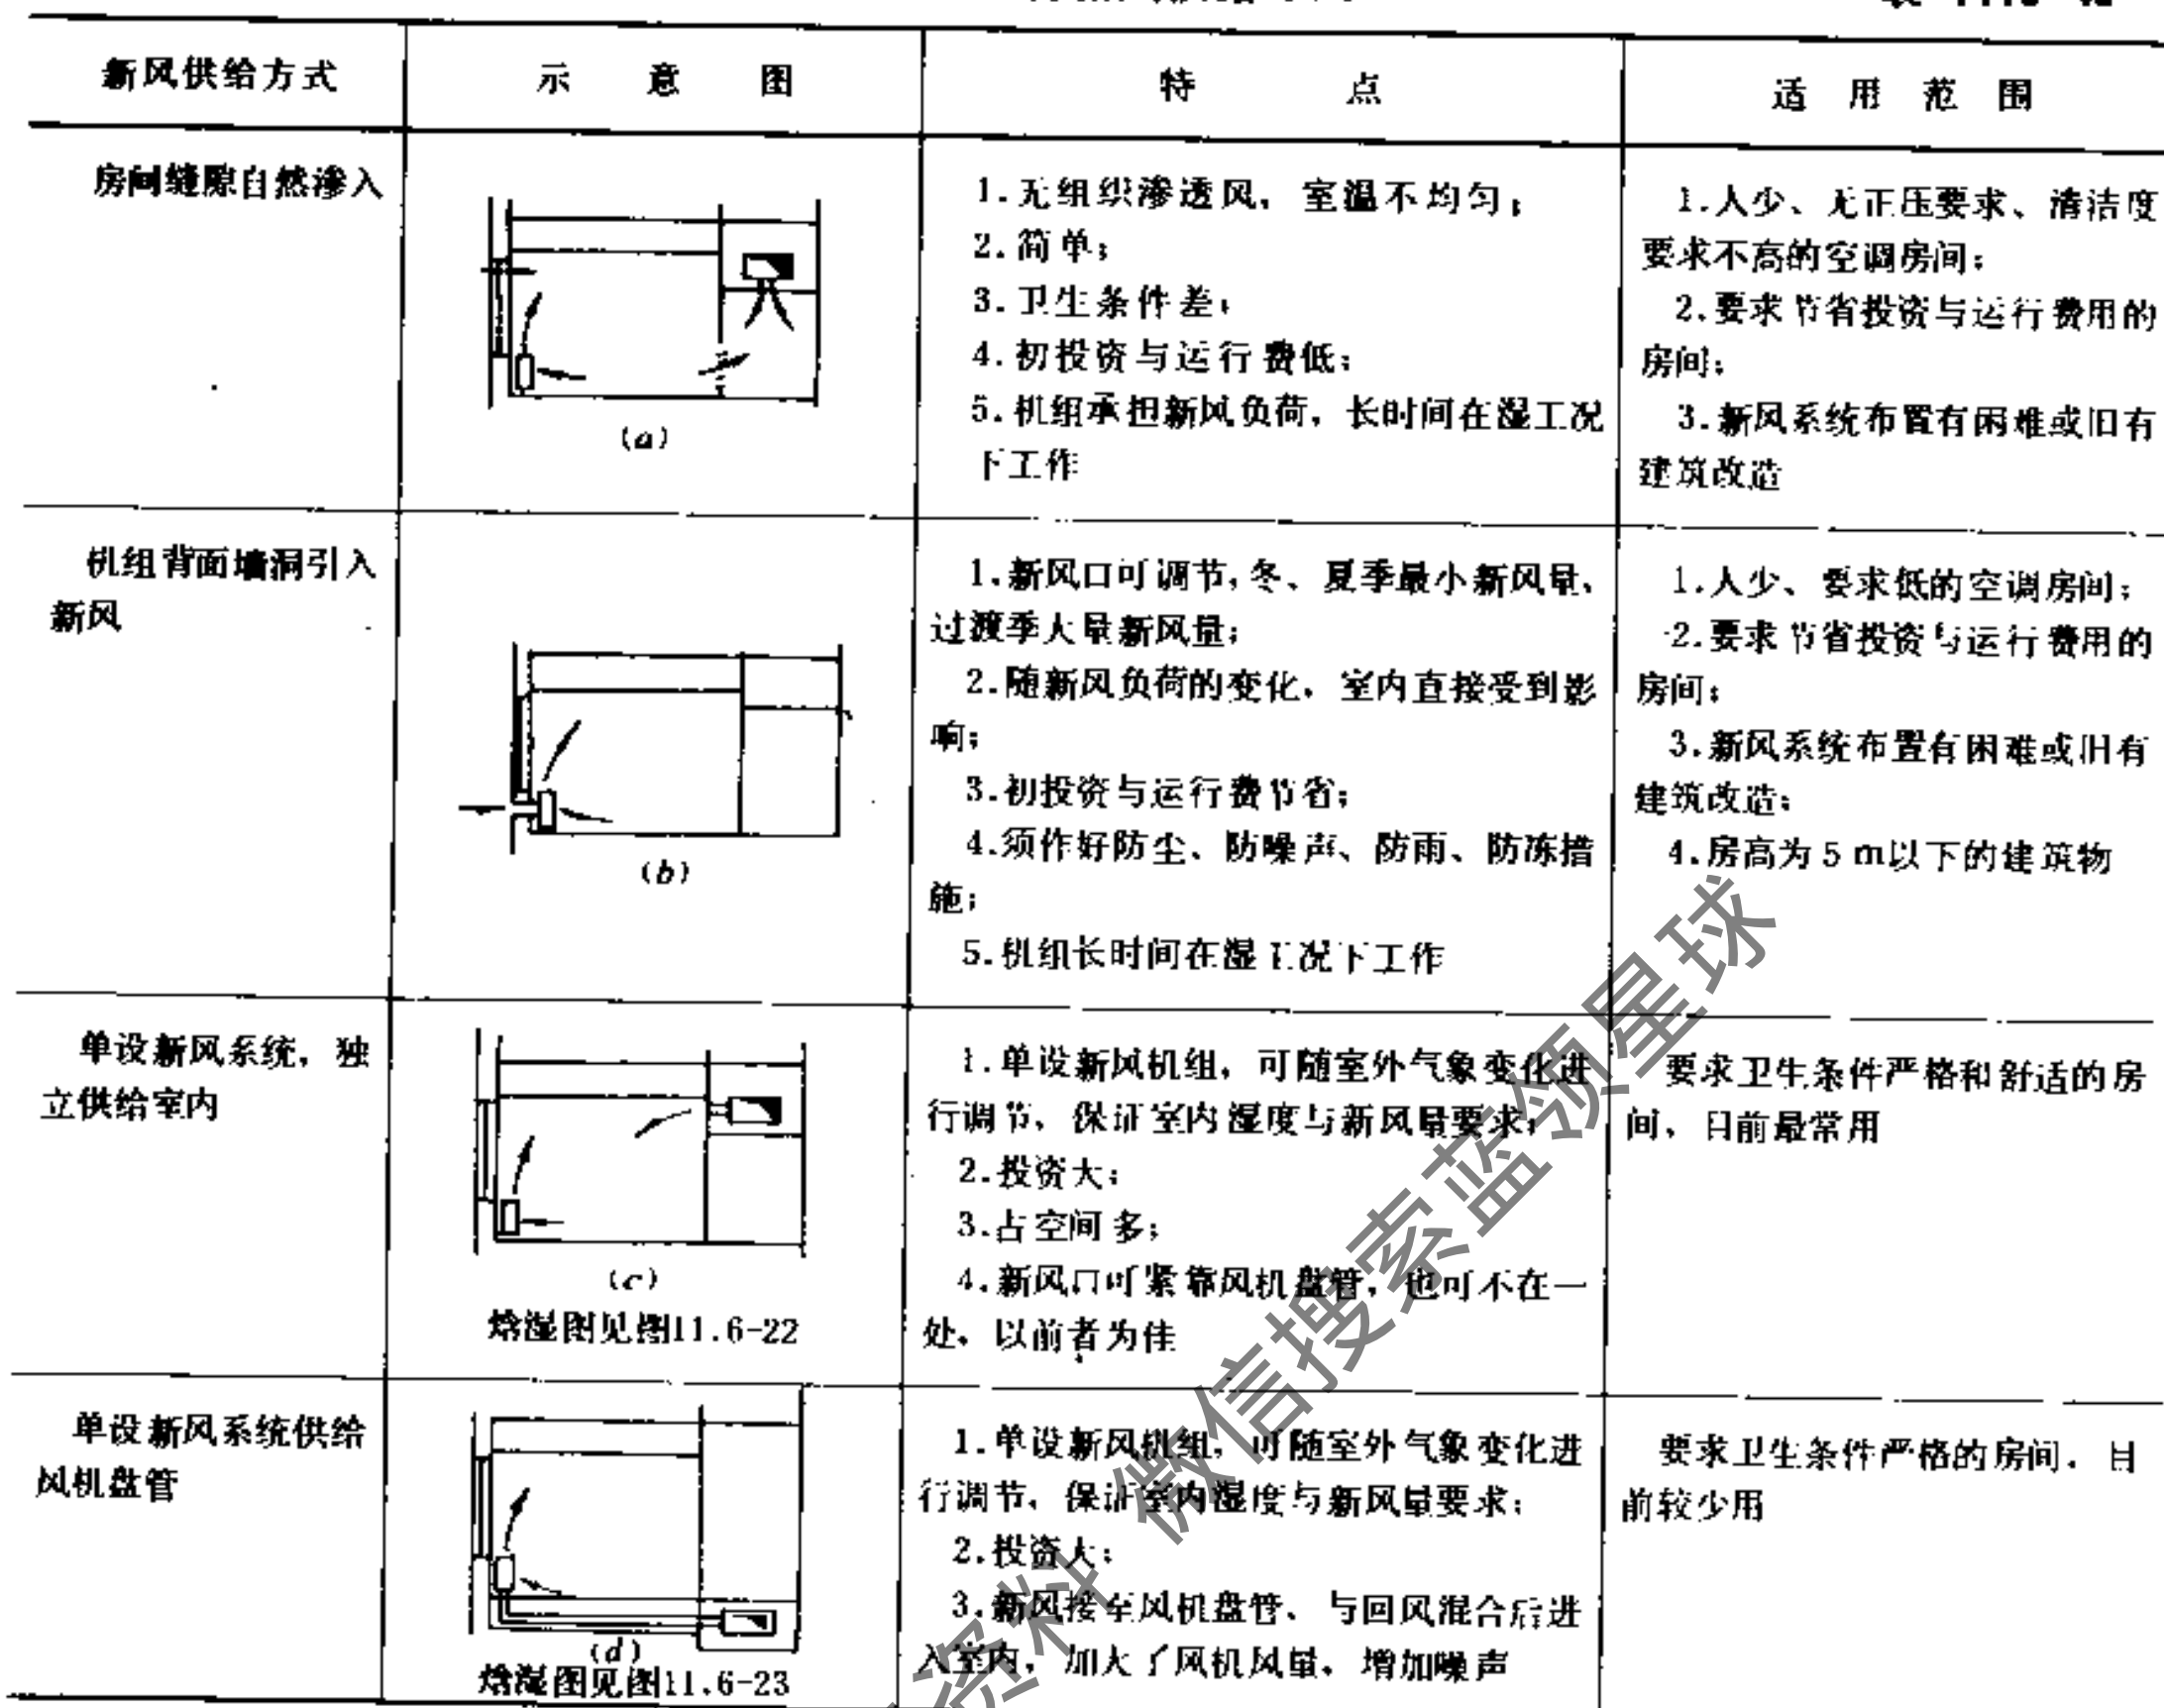 新风供给方式
示 意 图
特 点
适 用 范 围
房间缝隙自然渗入
(a)
1.无组织渗透风，室温不均匀；
2.简单；
3.卫生条件差；
4.初投资与运行费低；
5.机组承担新风负荷，长时间在湿工况
下工作
1.人少、无正压要求、清洁度
要求不高的空调房间；
2.要求节省投资与运行费用的
房间；
3.新风系统布置有困难或旧有
建筑改造
机组背面墙洞引入
新风
(b)
1.新风口可调节，冬、夏季最小新风量，
过渡季大量新风量；
2.随新风负荷的变化，室内直接受到影
响；
3.初投资与运行费节省；
4.须作好防尘、防噪声、防雨、防冻措
施；
5.机组长时间在湿工况下工作
1.人少、要求低的空调房间；
2.要求节省投资与运行费用的
房间；
3.新风系统布置有困难或旧有
建筑改造；
4.房高为5m以下的建筑物
单设新风系统，独
立供给室内
(c)
焓湿图见图11.6-22
1.单设新风机组，可随室外气象变化进
行调节，保证室内湿度与新风量要求；
2.投资大；
3.占空间多；
4.新风口可紧靠风机盘管，也可不在一
处，以前者为佳
要求卫生条件严格和舒适的房
间，目前最常用
单设新风系统供给
风机盘管
(d)
焓湿图见图11.6-23
1.单设新风机组，可随室外气象变化进
行调节，保证室内湿度与新风量要求；
2.投资大；
3.新风接至风机盘管、与回风混合后进
入室内，加大了风机风量，增加噪声
要求卫生条件严格的房间，目
前较少用
资料 微信搜索蓝领星球